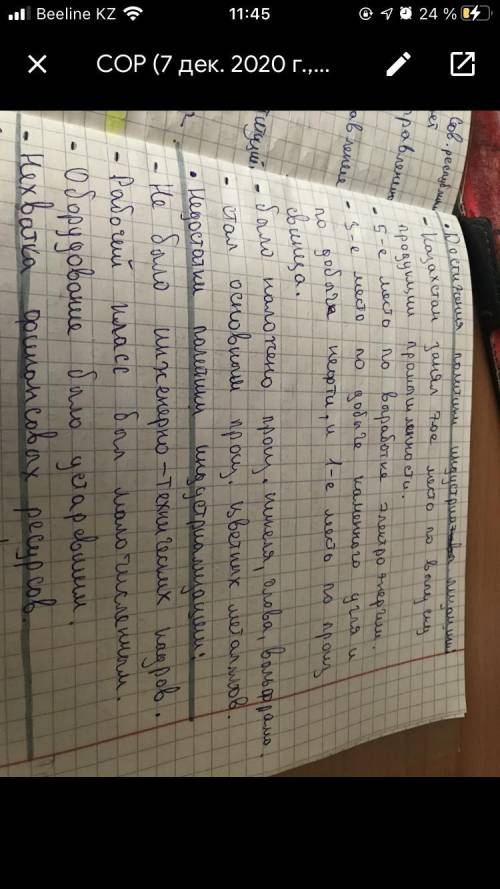 Beeline KZ 11:45 24 %
СОР (7 дек. 2020 г.,...
Сов. республик
• Достижения политики индустриализации
- Казахстан занял 7ое место по выпуску
продукции промышленности.
- 5-е место по выработке электроэнергии.
- 3-е место по добыче каменного угля и
по добыче нефти, и 1-е место по произ
свинца.
- было наложено произ. никеля, олова, вольфрама.
- стал основным произ. цветных металлов.
• Недостатки политики индустриализации:
- Не было инженерно-технических кадров.
- Рабочий класс был малочисленным.
- Оборудование было устаревшим.
- Нехватка финансовых ресурсов.